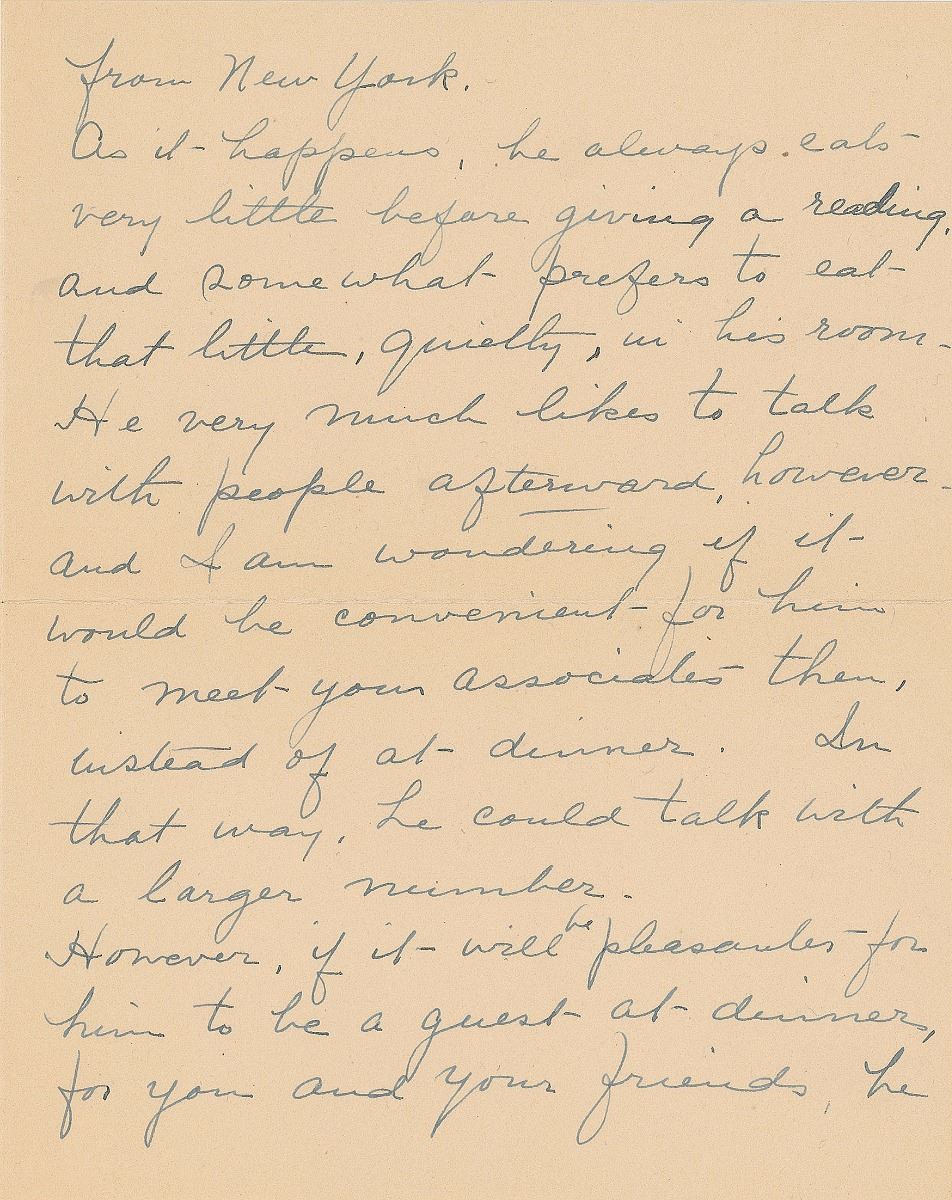 from New York.
As it happens, he always eats
very little before giving a reading,
and somewhat prefers to eat
that little, quietly, in his room.
He very much likes to talk
with people afterward, however -
and I am wondering if it
would be convenient for him
to meet your associates then,
instead of at dinner. In
that way, he could talk with
a larger number.
However, if it will be pleasanter for
him to be a guest at dinner,
for you and your friends, he